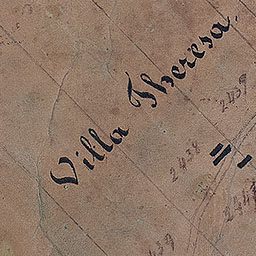 Villa Theresa.
2439
2438